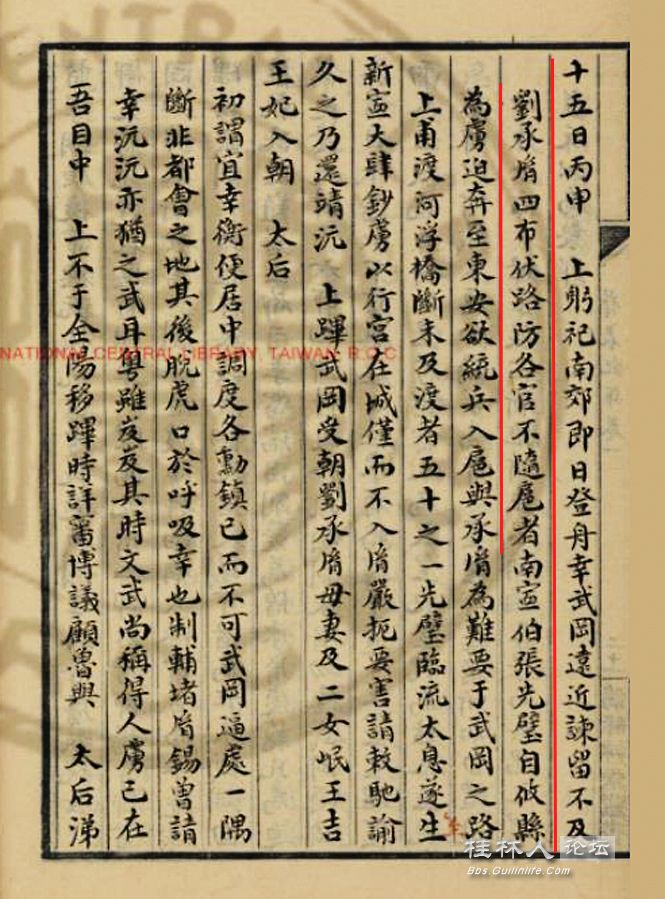 十五日丙申 上躬祀南郊即日登舟幸武岡遠近諫留不及
劉承胤四布伏路防各官不隨扈者南寧伯張先璧自攸縣
為虜迫奔至東安欲統兵入扈與承胤為難要于武岡之路
上甫渡河浮橋斷未及渡者五十之一先璧臨流太息遂生
新寧大肆鈔虜以行宮在城僅而不入胤嚴扼要害請敕馳諭
久之乃還靖沅 上蹕武岡受朝劉承胤母妻及二女岷王吉
王妃入朝 太后
初謂宜幸衡便居中調度各勳鎮已而不可武岡逼處一隅
斷非都會之地其後脫虎口於呼吸幸也制輔堵胤錫曾請
幸沅沅亦猶之武耳粵雖岌岌其時文武尚稱得人虜已在
吾目中 上不于全陽移蹕時詳審博議顧魯與 太后涕
NATIONAL CENTRAL LIBRARY, TAIWAN, R.O.C
桂林人论坛
Bbs.Guilinlife.com